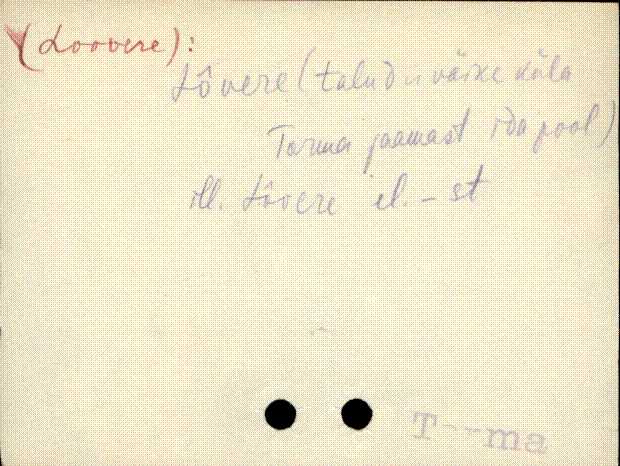 (Loovere):
Lôvere (talud ... väike küla
Torma jaamast ida pool)
ill. Lôvere el. - st
T---ma